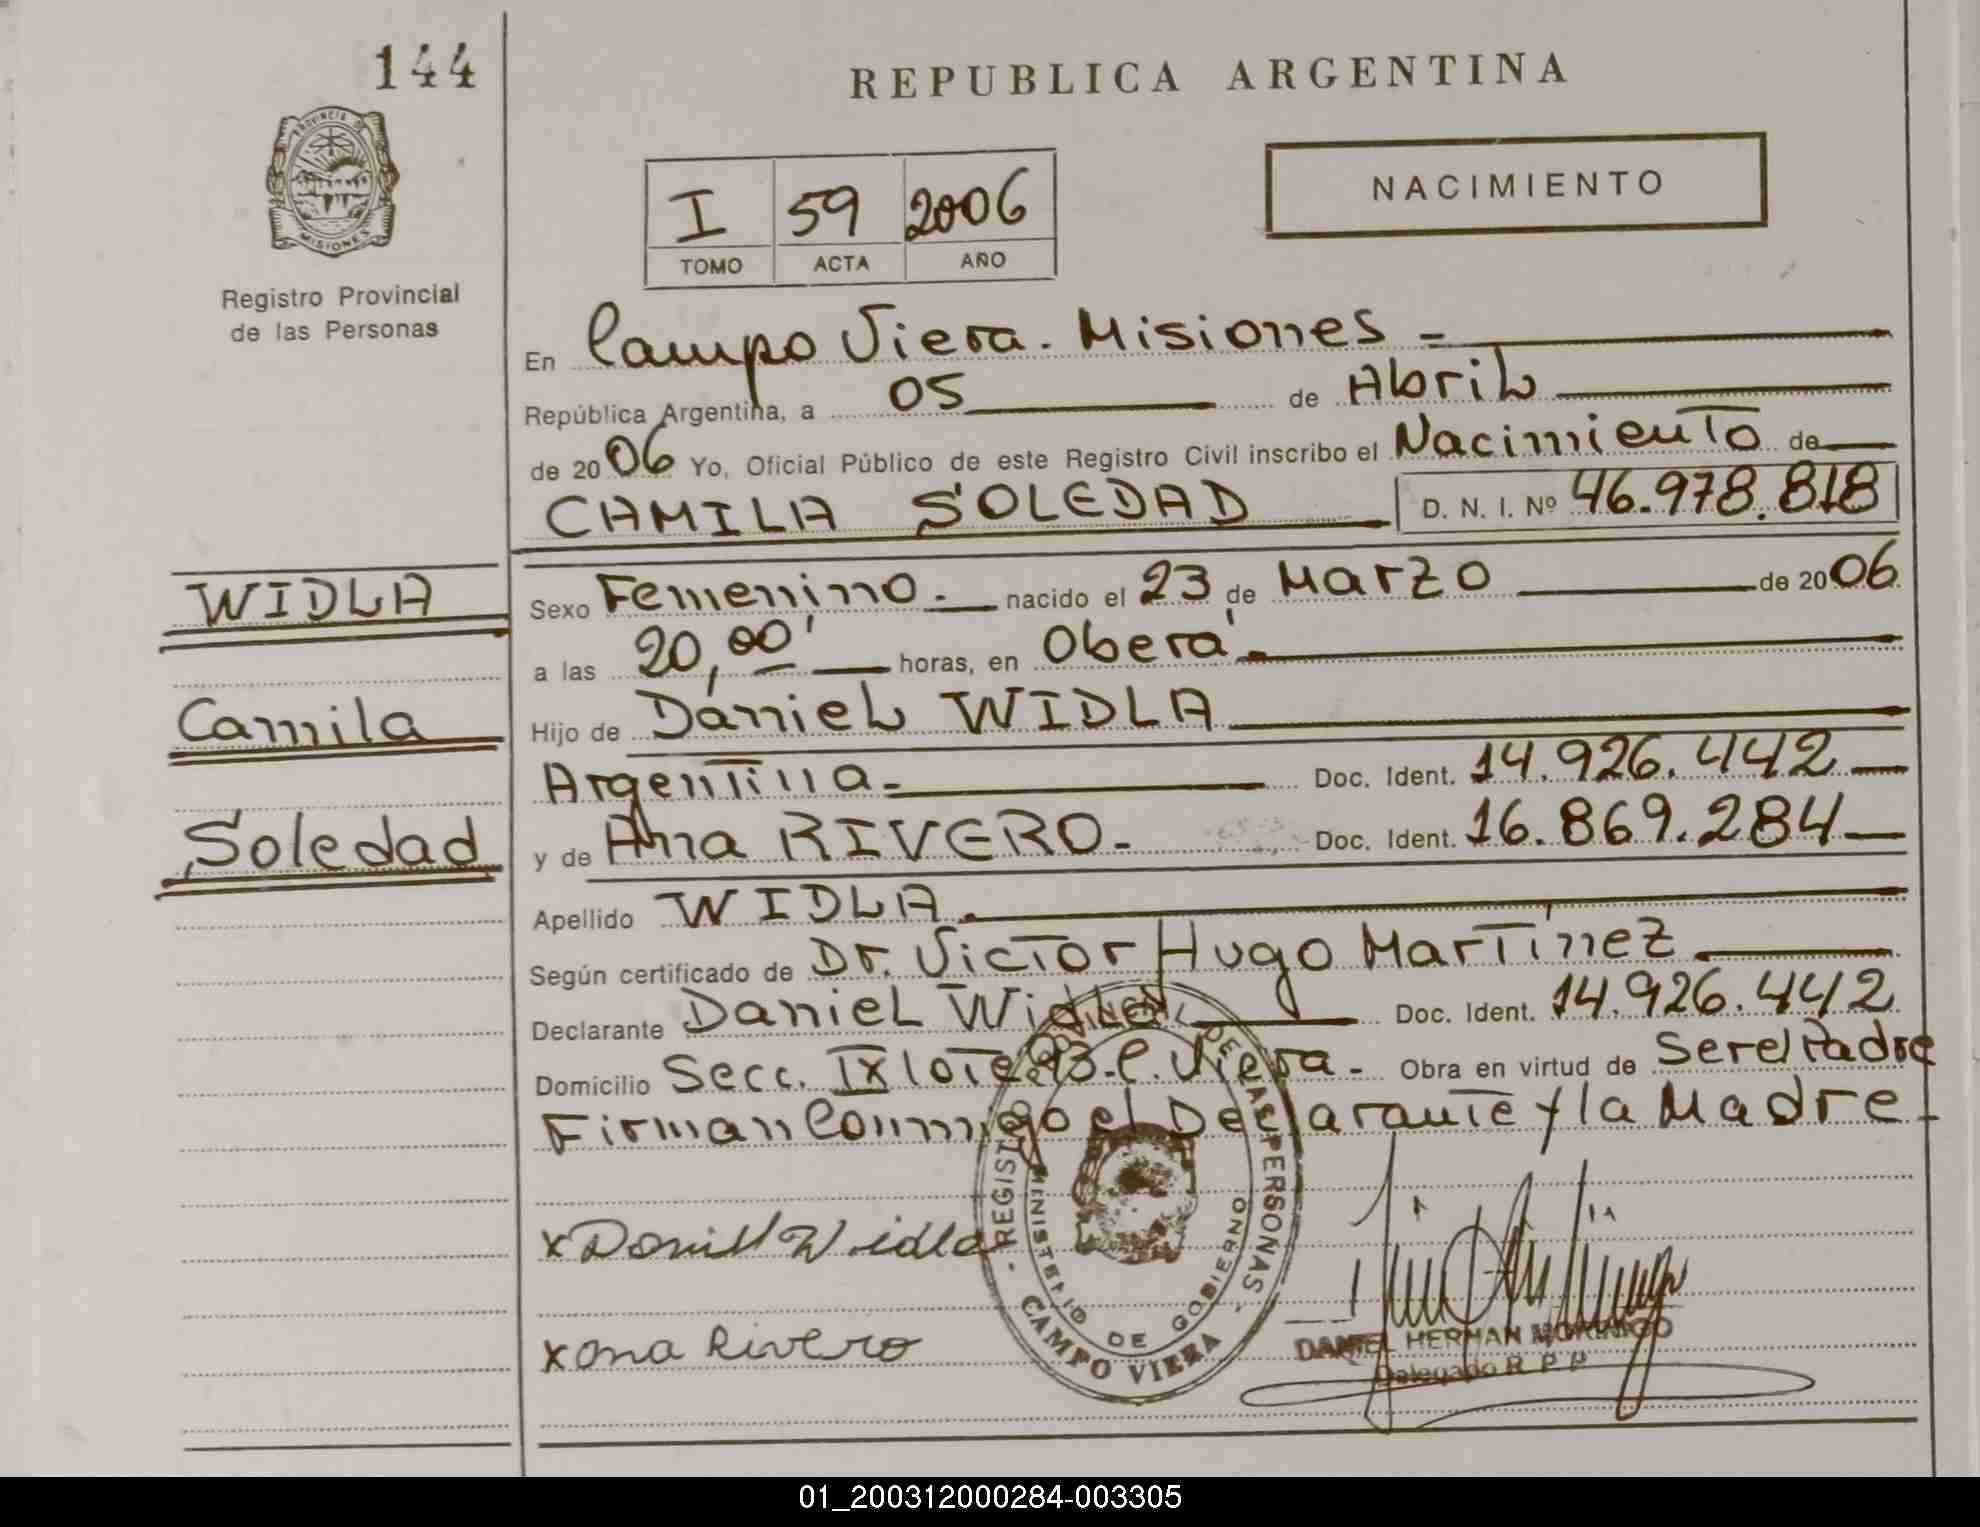 144
REPUBLICA ARGENTINA
PROVINCIA DE
MISIONES
Registro Provincial
de las Personas
NACIMIENTO
I 59 2006
TOMO ACTA AÑO
En Campo Viera. Misiones =
República Argentina, a 05 de Abril
de 2006 Yo, Oficial Público de este Registro Civil inscribo el Nacimiento de
CAMILA SOLEDAD D. N. I. Nº 46.978.818
WIDLA
Camila
Soledad
Sexo Femenino. nacido el 23 de Marzo de 2006.
a las 20,00' horas, en Oberá.
Hijo de Daniel WIDLA
Argentina. Doc. Ident. 14.926.442
y de Ana RIVERO. Doc. Ident. 16.869.284
Apellido WIDLA.
Según certificado de Dr. Victor Hugo Martínez
Declarante Daniel Widla Doc. Ident. 14.926.442
Domicilio Secc. IX lote 93. C. Viera. Obra en virtud de Ser el Padre
Firman Conmigo el Declarante y la Madre
x Daniel Widla
x Ana Rivero
REGISTRO PROVINCIAL DE LAS PERSONAS
MINISTERIO DE GOBIERNO
CAMPO VIERA
DANIEL HERNAN MORINIGO
Delegado R P P
01_200312000284-003305